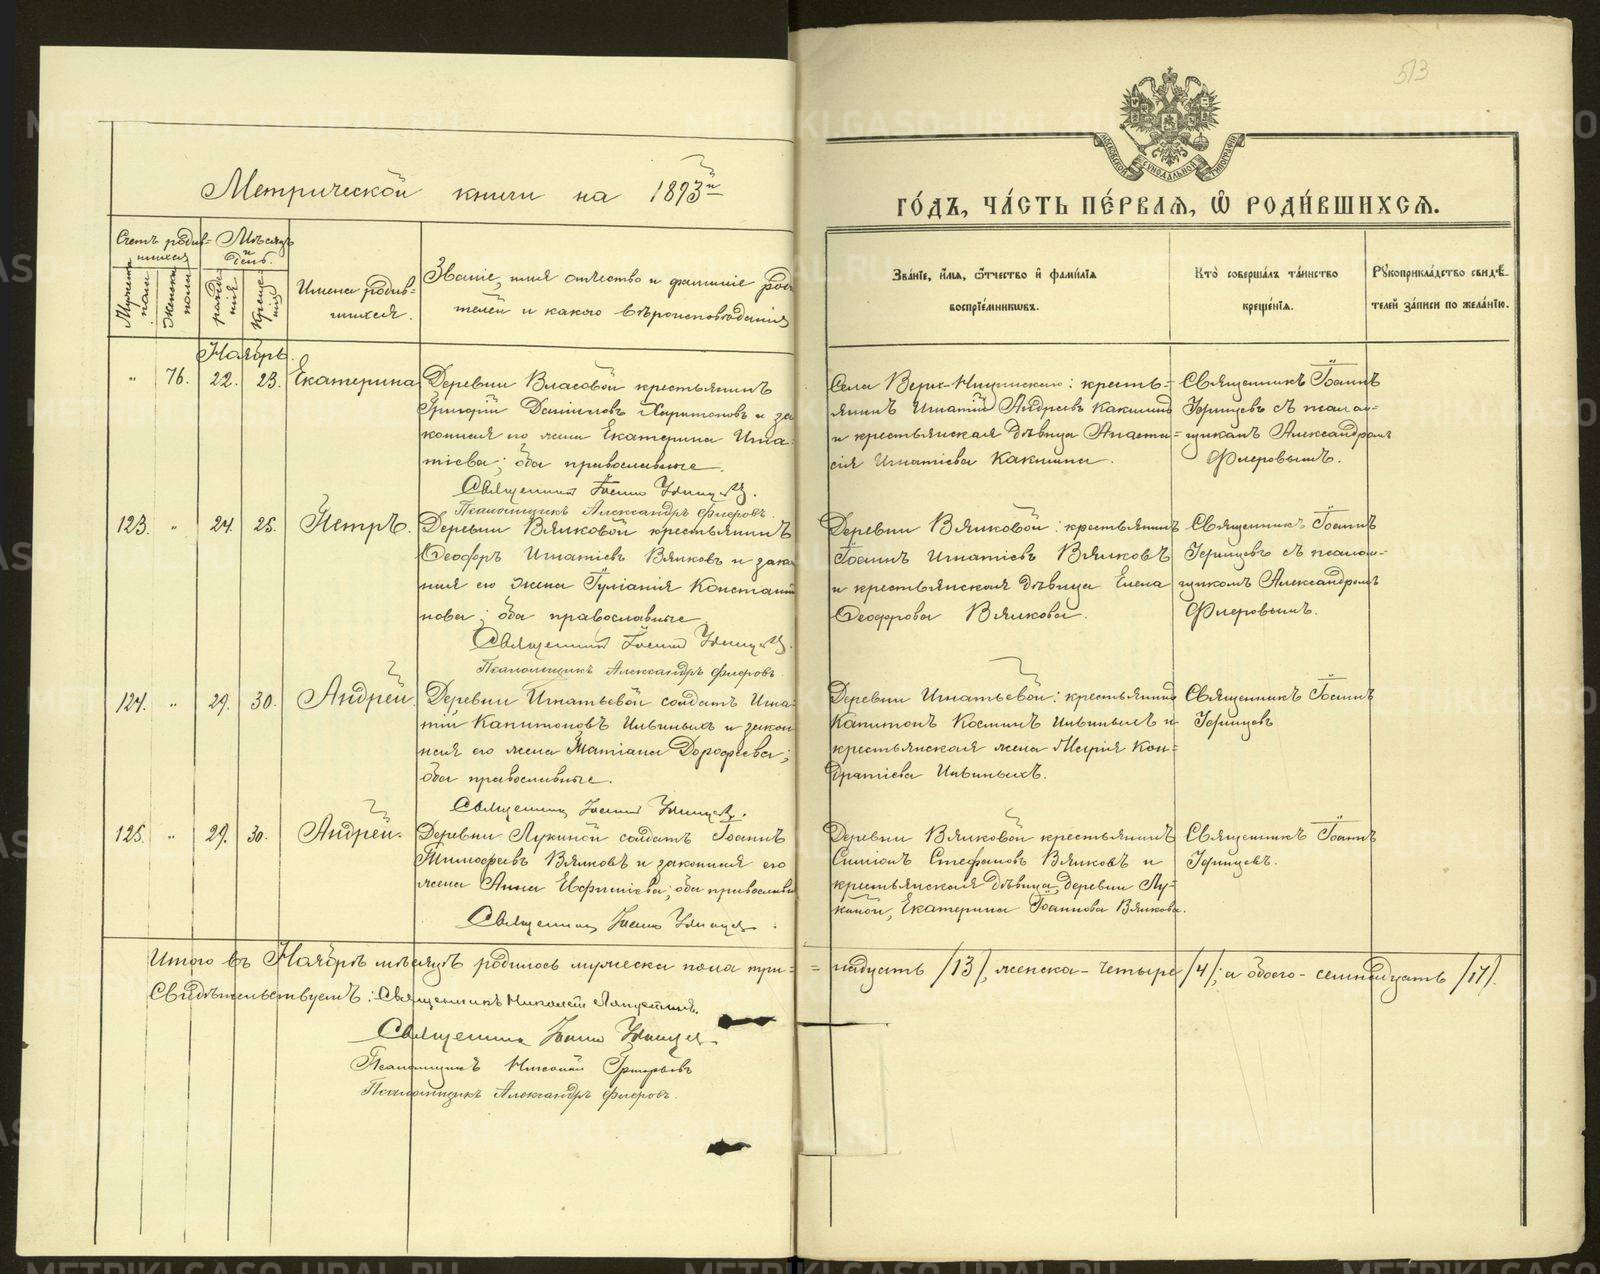 513
Метрической книги на 1893й
ГО́ДЪ, ЧА́СТЬ ПЕ́РВАѦ, Ѡ҆ РОДИ́ВШИХСѦ.
МОСКОВСКОЙ СѴНОДАЛЬНОЙ ТИПОГРАФІИ
Счетъ родив-
шихся
Мужеска
пола.
Женска
пола.
Мѣсяцъ
и
день.
рожде-
нія
Креще-
нія
Имена родив-
шихся.
Званіе, имя отчество и фамиліе роди-
телей и какого вѣроисповѣданія
Зва́нїе, и҆́мя, ѻ҆́тчество и҆ фами́лїя
воспрїе́мникѡвъ.
Кто̀ соверша́лъ та́инство
креще́нїя.
Рꙋкоприкла́дство свидѣ́-
телей за́писи по жела́нїю.
Ноябрь.
" 76. 22. 23. Екатерина
Деревни Власовой крестьянинъ
Григорій Даниловъ Харитоновъ и за
конная его жена Екатерина Игна-
тіева; оба православные.
Священникъ Іоаннъ
Псаломщикъ Александръ Флеровъ.
Села Верх-Ницинскаго: кресть-
янинъ Игнатій Андреевъ Какшинъ
и крестьянская дѣвица Анаста-
сія Игнатіева Какшина.
Священникъ Іоаннъ
съ псалом-
щикомъ Александромъ
Флеровымъ.
123. " 24. 25. Петръ.
Деревни Вялковой крестьянинъ
Ѳеодоръ Игнатіевъ Вялковъ и закон
ная его жена Іуліанія Константи
нова; оба православные
Священникъ Іоаннъ
Псаломщикъ Александръ Флеровъ.
Деревни Вялковой: крестьянинъ
Іоаннъ Игнатіевъ Вялковъ
и крестьянская дѣвица Елена
Ѳеодорова Вялкова.
Священникъ Іоаннъ
съ псалом-
щикомъ Александромъ
Флеровымъ.
124. " 29. 30. Андрей.
Деревни Игнатьевой солдатъ Игна-
тій Капитоновъ Ильиныхъ и закон
ная его жена Татіана Дорофеева;
оба православные.
Священникъ Іоаннъ
Деревни Игнатьевой: крестьянинъ
Капитонъ Косминъ Ильиныхъ и
крестьянская жена Марія Кон-
дратіева Ильиныхъ.
Священникъ Іоаннъ
125. " 29. 30. Андрей.
Деревни Лукиной солдатъ Іоаннъ
Тимофеевъ Вялковъ и законная его
жена Анна Евфиміева; оба православны
Священникъ Іоаннъ
Деревни Вялковой крестьянинъ
Симіонъ Стефановъ Вялковъ и
крестьянская дѣвица, деревни Лу-
киной, Екатерина Іоаннова Вялкова.
Священникъ Іоаннъ
Итого въ Ноябрѣ мѣсяцѣ родилось мужеска пола три-
= надцать /13/, женска - четыре /4/, а обоего - семнадцать /17/.
Свидѣтельствуемъ: Священникъ Николай
Священникъ Іоаннъ
Псаломщикъ Николай Григорьевъ
Псаломщикъ Александръ Флеровъ.
METRIKI.GASO-URAL.RU